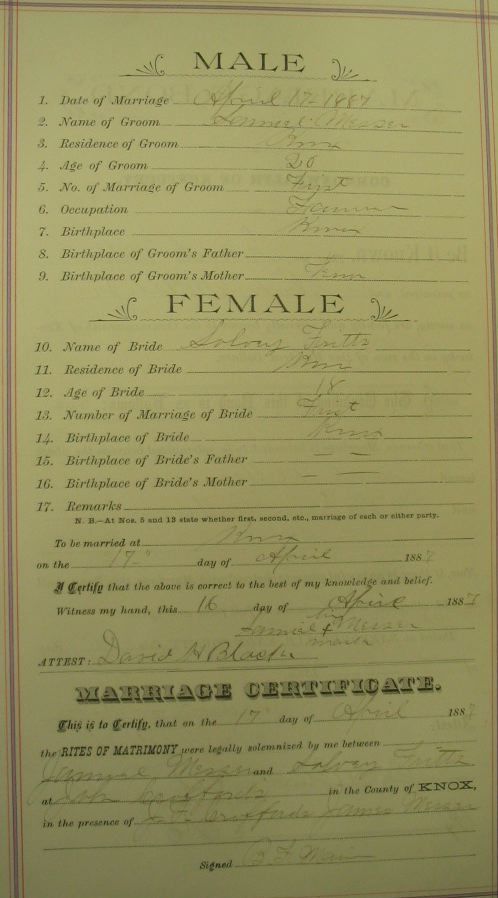 MALE
1. Date of Marriage April 17-1887
2. Name of Groom Samuel Messer
3. Residence of Groom Knox
4. Age of Groom 20
5. No. of Marriage of Groom First
6. Occupation Farmer
7. Birthplace Knox
8. Birthplace of Groom's Father
9. Birthplace of Groom's Mother
FEMALE
10. Name of Bride Fritts
11. Residence of Bride Knox
12. Age of Bride 18
13. Number of Marriage of Bride First
14. Birthplace of Bride Knox
15. Birthplace of Bride's Father — —
16. Birthplace of Bride's Mother —
17. Remarks
N. B.—At Nos. 5 and 13 state whether first, second, etc., marriage of each or either party.
To be married at Knox
on the 17" day of April 1887
I Certify that the above is correct to the best of my knowledge and belief.
Witness my hand, this 16 day of April 1887
his
Samuel x Messer
mark
ATTEST: David H Black
MARRIAGE CERTIFICATE.
This is to Certify, that on the 17 day of April 1887
the RITES OF MATRIMONY were legally solemnized by me between
Samuel Messer and Fritts
at in the County of KNOX,
in the presence of James Messer
Signed